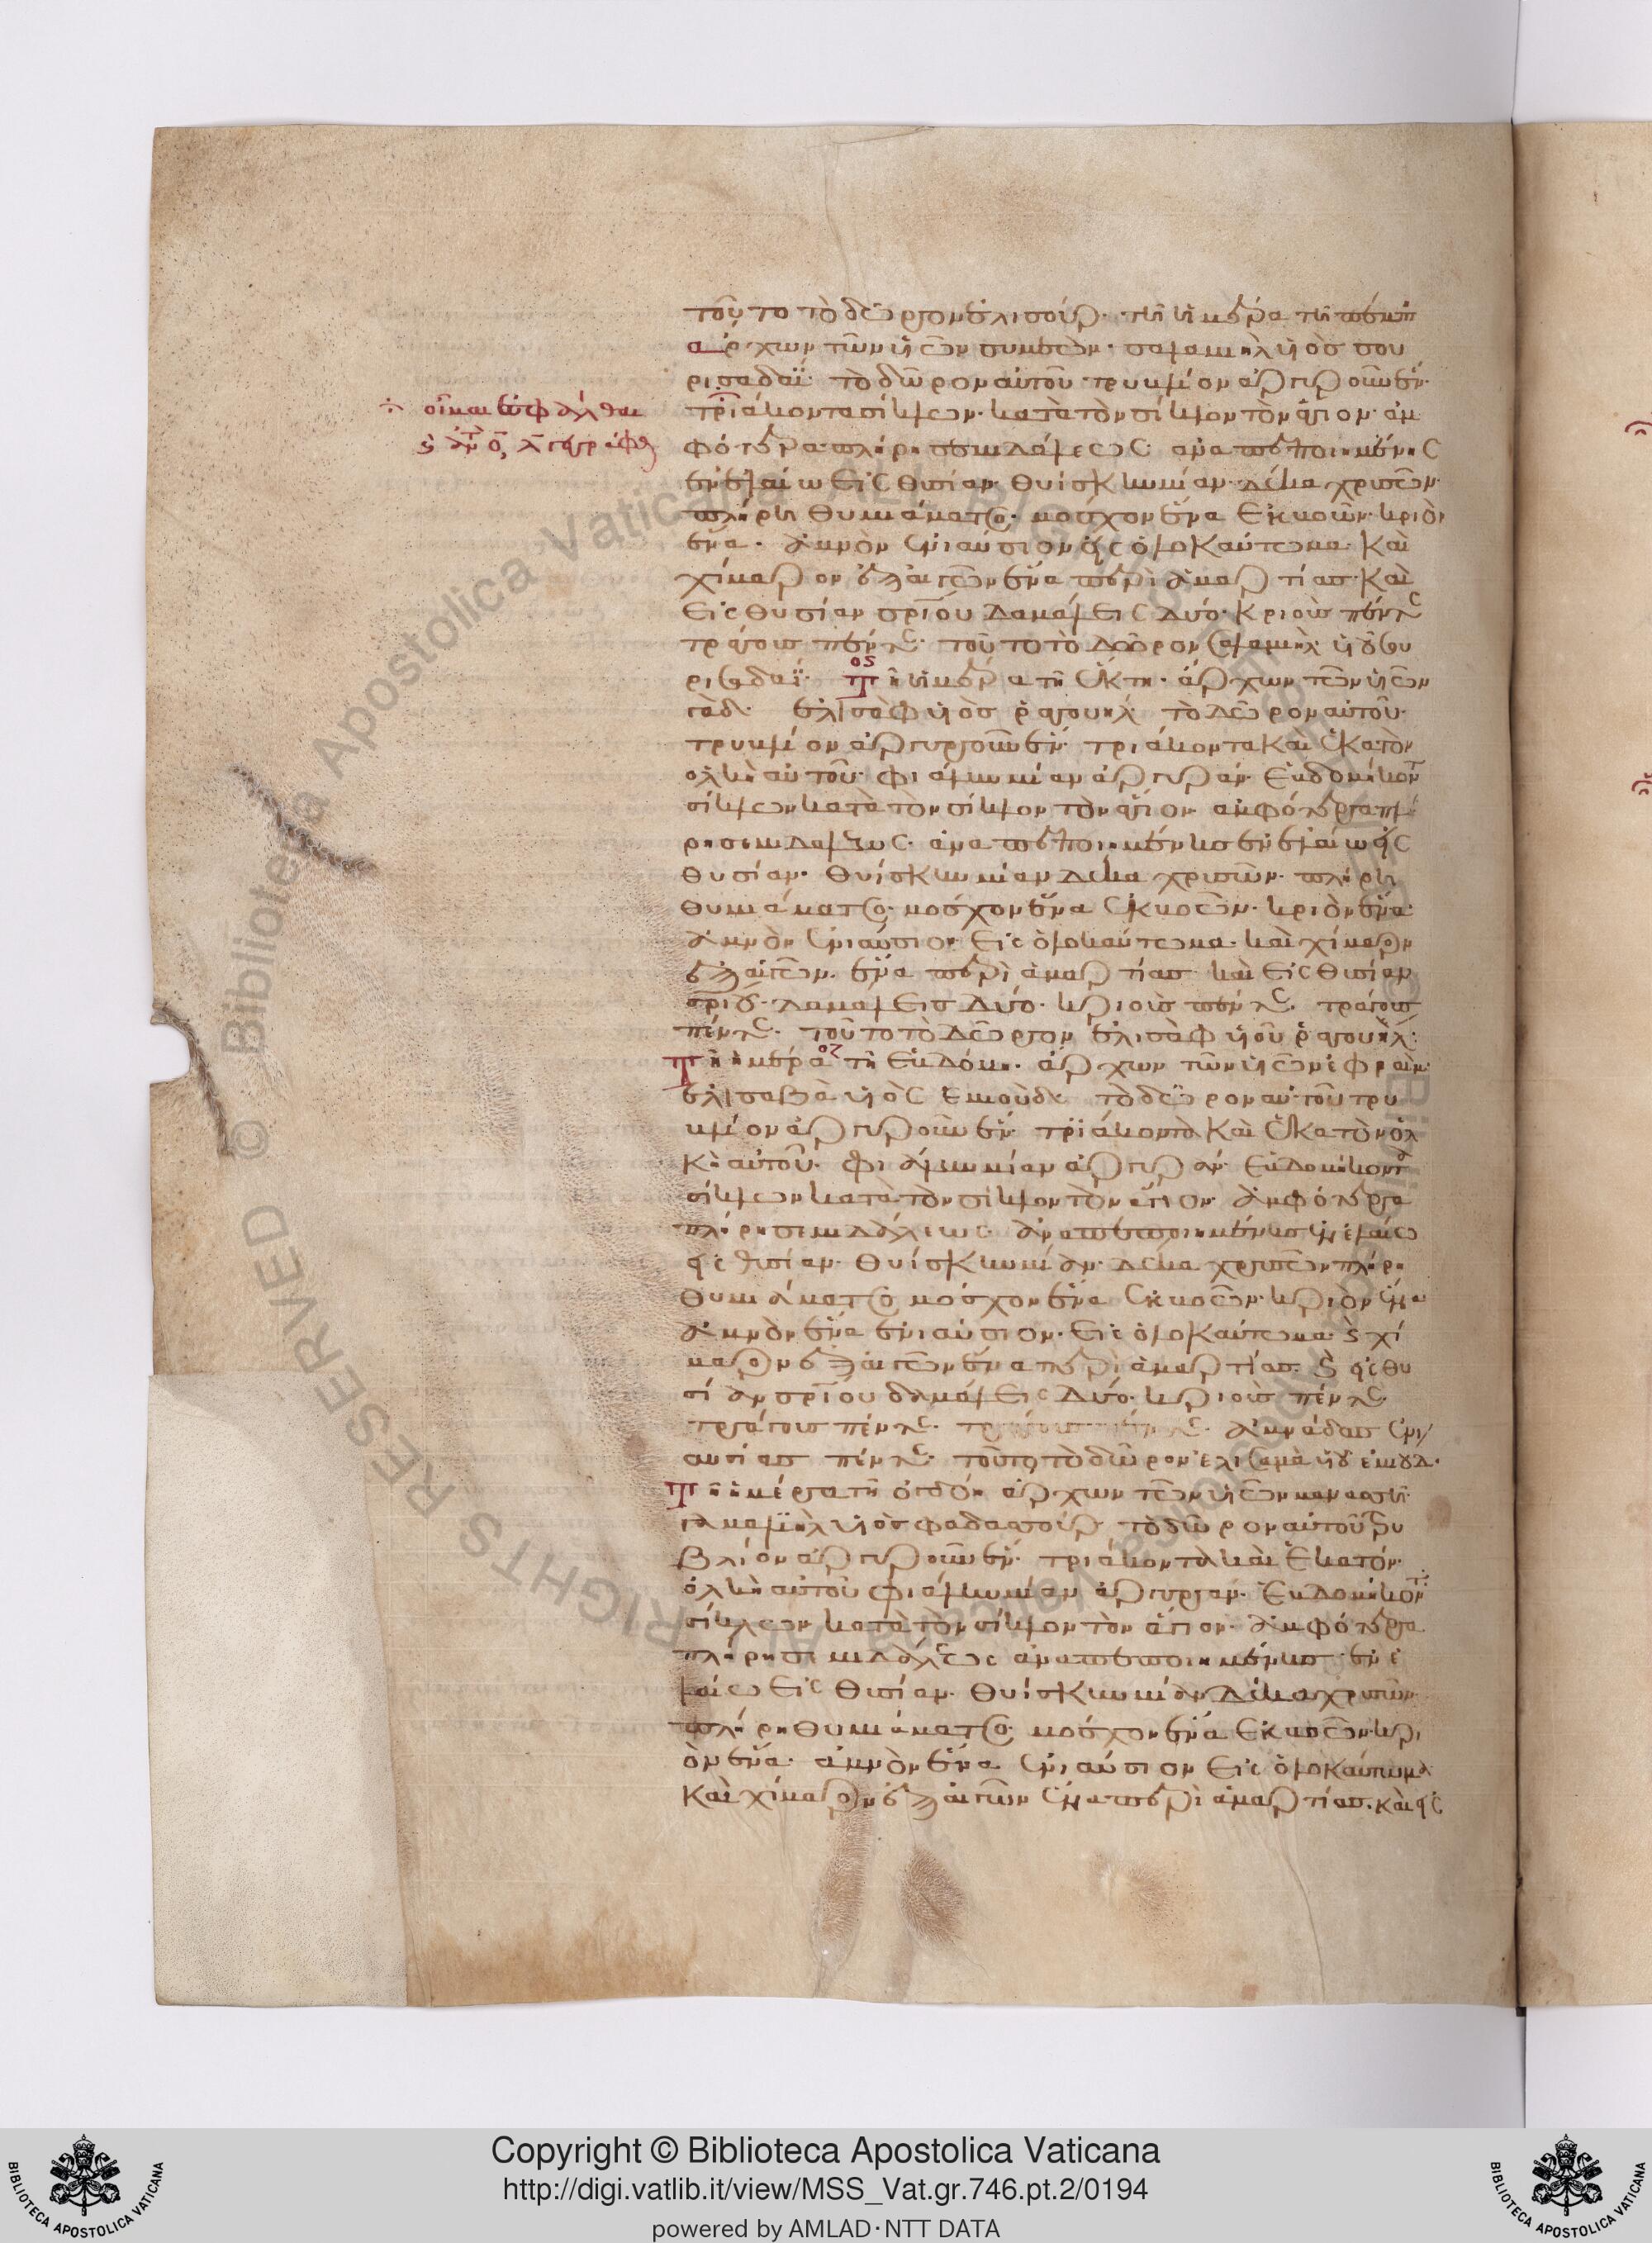 τοῦτο τὸ δῶρον ἐλισούρ· τῆ ἡμέρα τῆ πέμπ
ἄρχων τῶν υἱῶν συμεών· σαλαμιὴλ υἱὸσ σου
ρισαδαΐ· τὸ δῶρον αὐτοῦ· τρυκλίον ἀργυροῦν ἕν·
τριάκοντα σίκλων· κατὰ τὸν σίκλον τὸν ἅγιον· ἀμ
φότερα πλήρη σεμιδάλεως ἀναπεποιημένης
ἐν ἐλαίω εἰς θυσίαν· θυίσκην μίαν· δέκα χρυσῶν·
πλήρη θυμιάματος· μόσχον ἕνα ἐκ βοῶν· κριὸν
ἕνα· ἀμνὸν ἐνιαύσιον εἰς ὁλοκαύτωμα· καὶ
χίμαρον ἐξ αἰγῶν ἕνα περὶ ἁμαρτίασ· καὶ
εἰς θυσίαν σωτηρίου δαμάλεις δύο· κριοὺσ πέντε
τράγουσ πέντε· τοῦτο τὸ δῶρον σαλαμιὴλ υἱοῦ σου
ρισαδαΐ· τῆ ἡμέρα τῆ ἕκτη· ἄρχων τῶν υἱῶν
γάδ· ἐλισὰφ υἱὸσ ῥαγουήλ· τὸ δῶρον αὐτοῦ·
τρυκλίον ἀργυροῦν ἕν· τριάκοντα καὶ ἑκατὸν
ὁλκὴ αὐτοῦ· φιάλην μίαν ἀργυρᾶν· ἑβδομήκοντ
σίκλων κατὰ τὸν σίκλον τὸν ἅγιον ἀμφότερα πλή
ρη σεμιδάλεως· ἀναπεποιημένησ ἐν ἐλαίω εἰς
θυσίαν· θυίσκην μίαν δέκα χρυσῶν· πλήρη
θυμιάματος· μόσχον ἕνα ἐκ βοῶν· κριὸν ἕνα·
ἀμνὸν ἐνιαύσιον εἰς ὁλοκαύτωμα· καὶ χίμαρον
ἐξ αἰγῶν· ἕνα περὶ ἁμαρτίασ καὶ εἰς θυσίαν
σωτηρίου· δαμάλεισ δύο· κριοὺσ πέντε· τράγουσ
πέντε· τοῦτο τὸ δῶρον ἐλισὰφ υἱοῦ ῥαγουήλ·
τῆ ἡμέρα τῆ ἑβδόμη· ἄρχων τῶν υἱῶν ἐφραίμ·
ἐλισαμὰ υἱὸς ἐμιοὺδ· τὸ δῶρον αὐτοῦ τρυ
κλίον ἀργυροῦν ἕν· τριάκοντα καὶ ἑκατὸν ὁλ
κὴ αὐτοῦ· φιάλην μίαν ἀργυρᾶν· ἑβδομήκοντα
σίκλων κατὰ τὸν σίκλον τὸν ἅγιον· ἀμφότερα
πλήρη σεμιδάλεως· ἀναπεποιημένησ ἐν ἐλαίω
εἰς θυσίαν· θυίσκην μίαν· δέκα χρυσῶν πλήρη
θυμιάματος μόσχον ἕνα ἐκ βοῶν· κριὸν ἕνα
ἀμνὸν ἕνα ἐνιαύσιον· εἰς ὁλοκαύτωμα· καὶ χί
μαρον ἐξ αἰγῶν ἕνα περὶ ἁμαρτίασ· καὶ εἰς θυ
σίαν σωτηρίου δαμάλεις δύο· κριοὺσ πέντε·
τράγουσ πέντε· ἀμνάδασ ἐνι
αυσίασ πέντε· τοῦτο τὸ δῶρον ἐλισαμὰ υἱοῦ ἐμιούδ·
τῆ ἡμέρα τῆ ὀγδόη ἄρχων τῶν υἱῶν μανασσῆ·
γαμαλιὴλ υἱὸς φαδασσούρ· τὸ δῶρον αὐτοῦ τρυ
βλίον ἀργυροῦν ἕν· τριάκοντα καὶ ἑκατόν·
ὁλκὴ αὐτοῦ φιάλην μίαν ἀργυρᾶν· ἑβδομήκοντ
σίκλων κατὰ τὸν σίκλον τὸν ἅγιον· ἀμφότερα
πλήρη σεμιδάλεως ἀναπεποιημένησ ἐν ἐ
λαίω εἰς θυσίαν· θυίσκην μίαν δέκα χρυσῶν
πλήρη θυμιάματος· μόσχον ἕνα ἐκ βοῶν· κρι
ὸν ἕνα· ἀμνὸν ἕνα ἐνιαύσιον εἰς ὁλοκαύτωμα
καὶ χίμαρον ἐξ αἰγῶν ἕνα περὶ ἁμαρτίασ· καὶ εἰς
Copyright © Biblioteca Apostolica Vaticana
http://digi.vatlib.it/view/MSS_Vat.gr.746.pt.2/0194
powered by AMLAD·NTT DATA
BIBLIOTECA APOSTOLICA VATICANA
BIBLIOTECA APOSTOLICA VATICANA